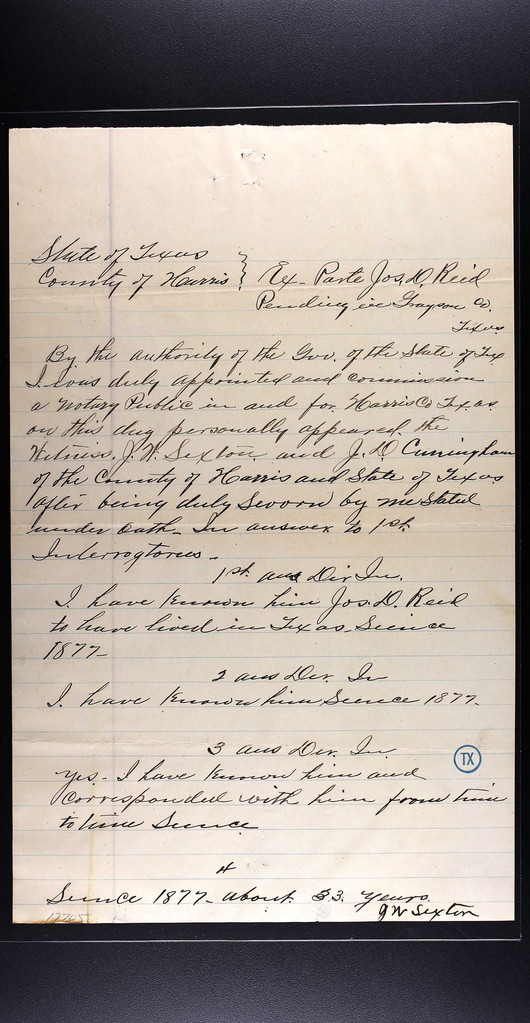 State of Texas
County of Harris } Ex- Parte Jos. D. Reid
Pending in Grayson Co.
Texas
By the authority of the Gov. of the State of Tex
I was duly appointed and commission
a Notary Public in and for Harris Co Texas.
on this day personally appeared the
Witness, J. W. Sexton and J. D. Cunningham
of the County of Harris and State of Texas
after being duly Sworn by me Stated
under Oath- In answer to 1st.
Interrogtorus-
1st. ans Dir In.
I. have Known him Jos. D. Reid
to have lived in Texas Scince
1877-
2 ans Der. In
I. have Known him Scence 1877-
3 ans Der. In.
TX
Yes- I have Known him and
Corresponded with him from time
to time Sence
4
Sence 1877- about 33. Years.
JW Sexton